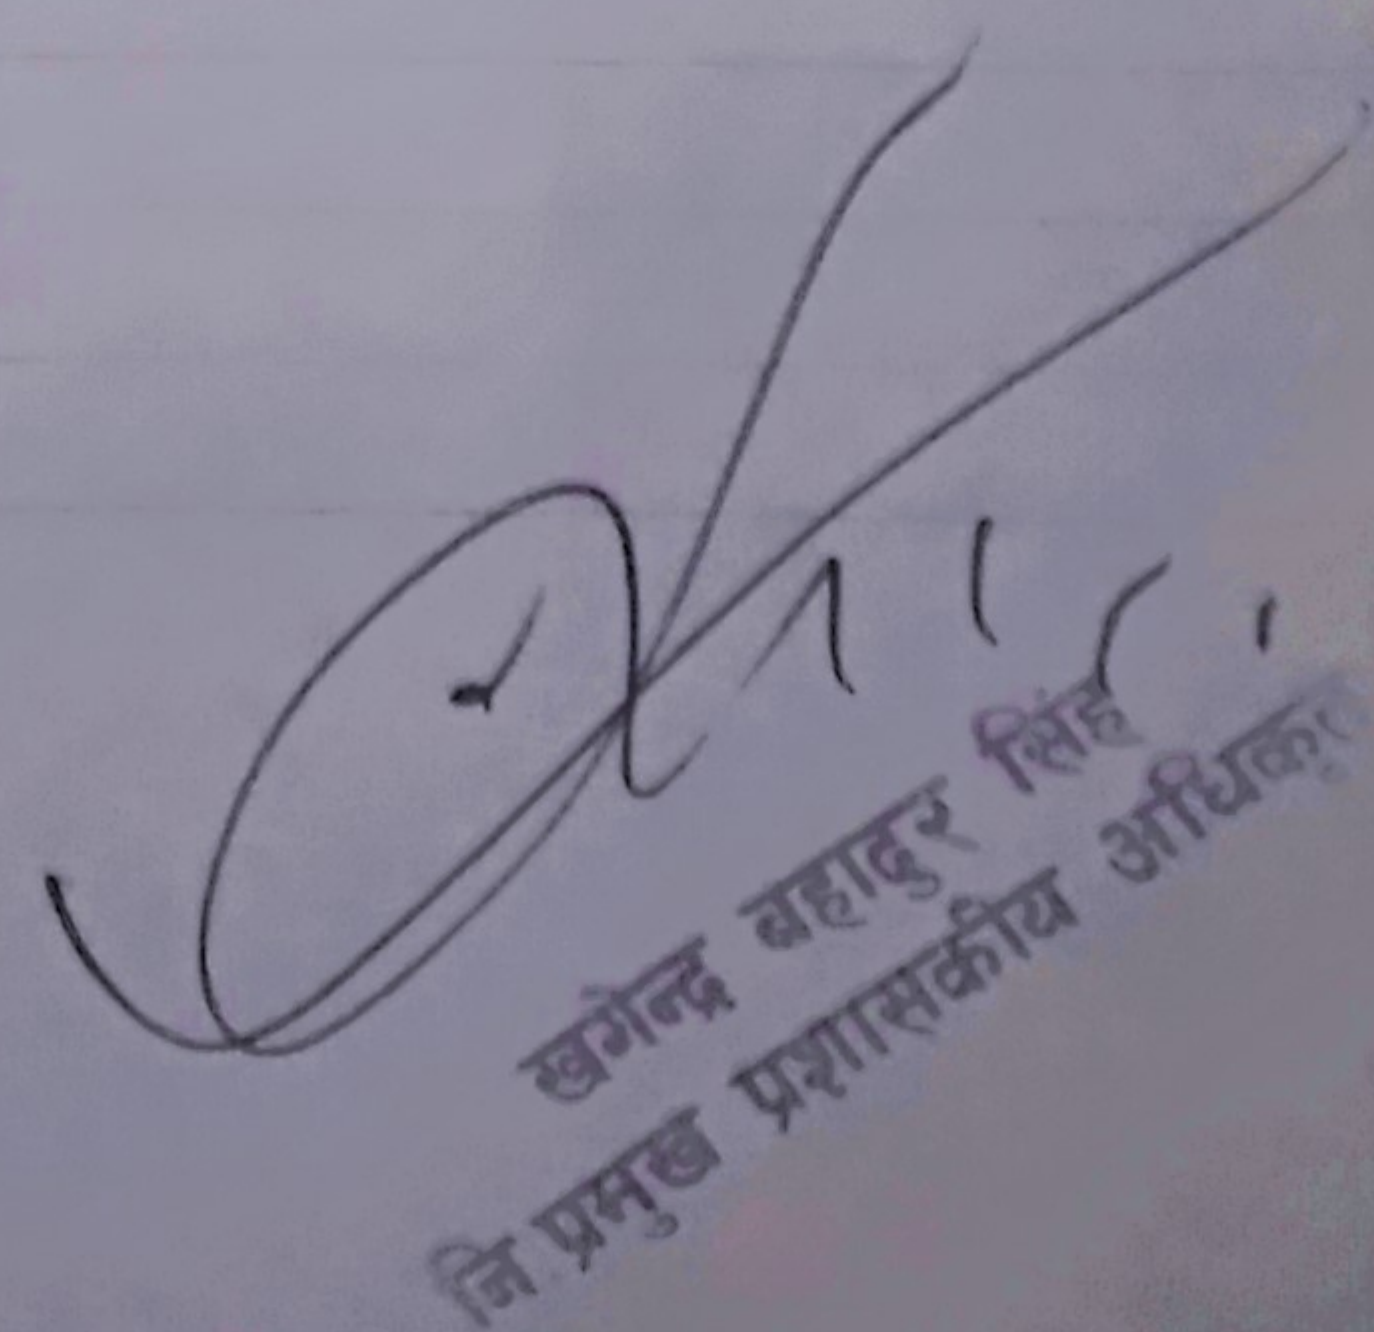 खगेन्द्र बहादुर सिंह
नि प्रमुख प्रशासकीय अधिकृत